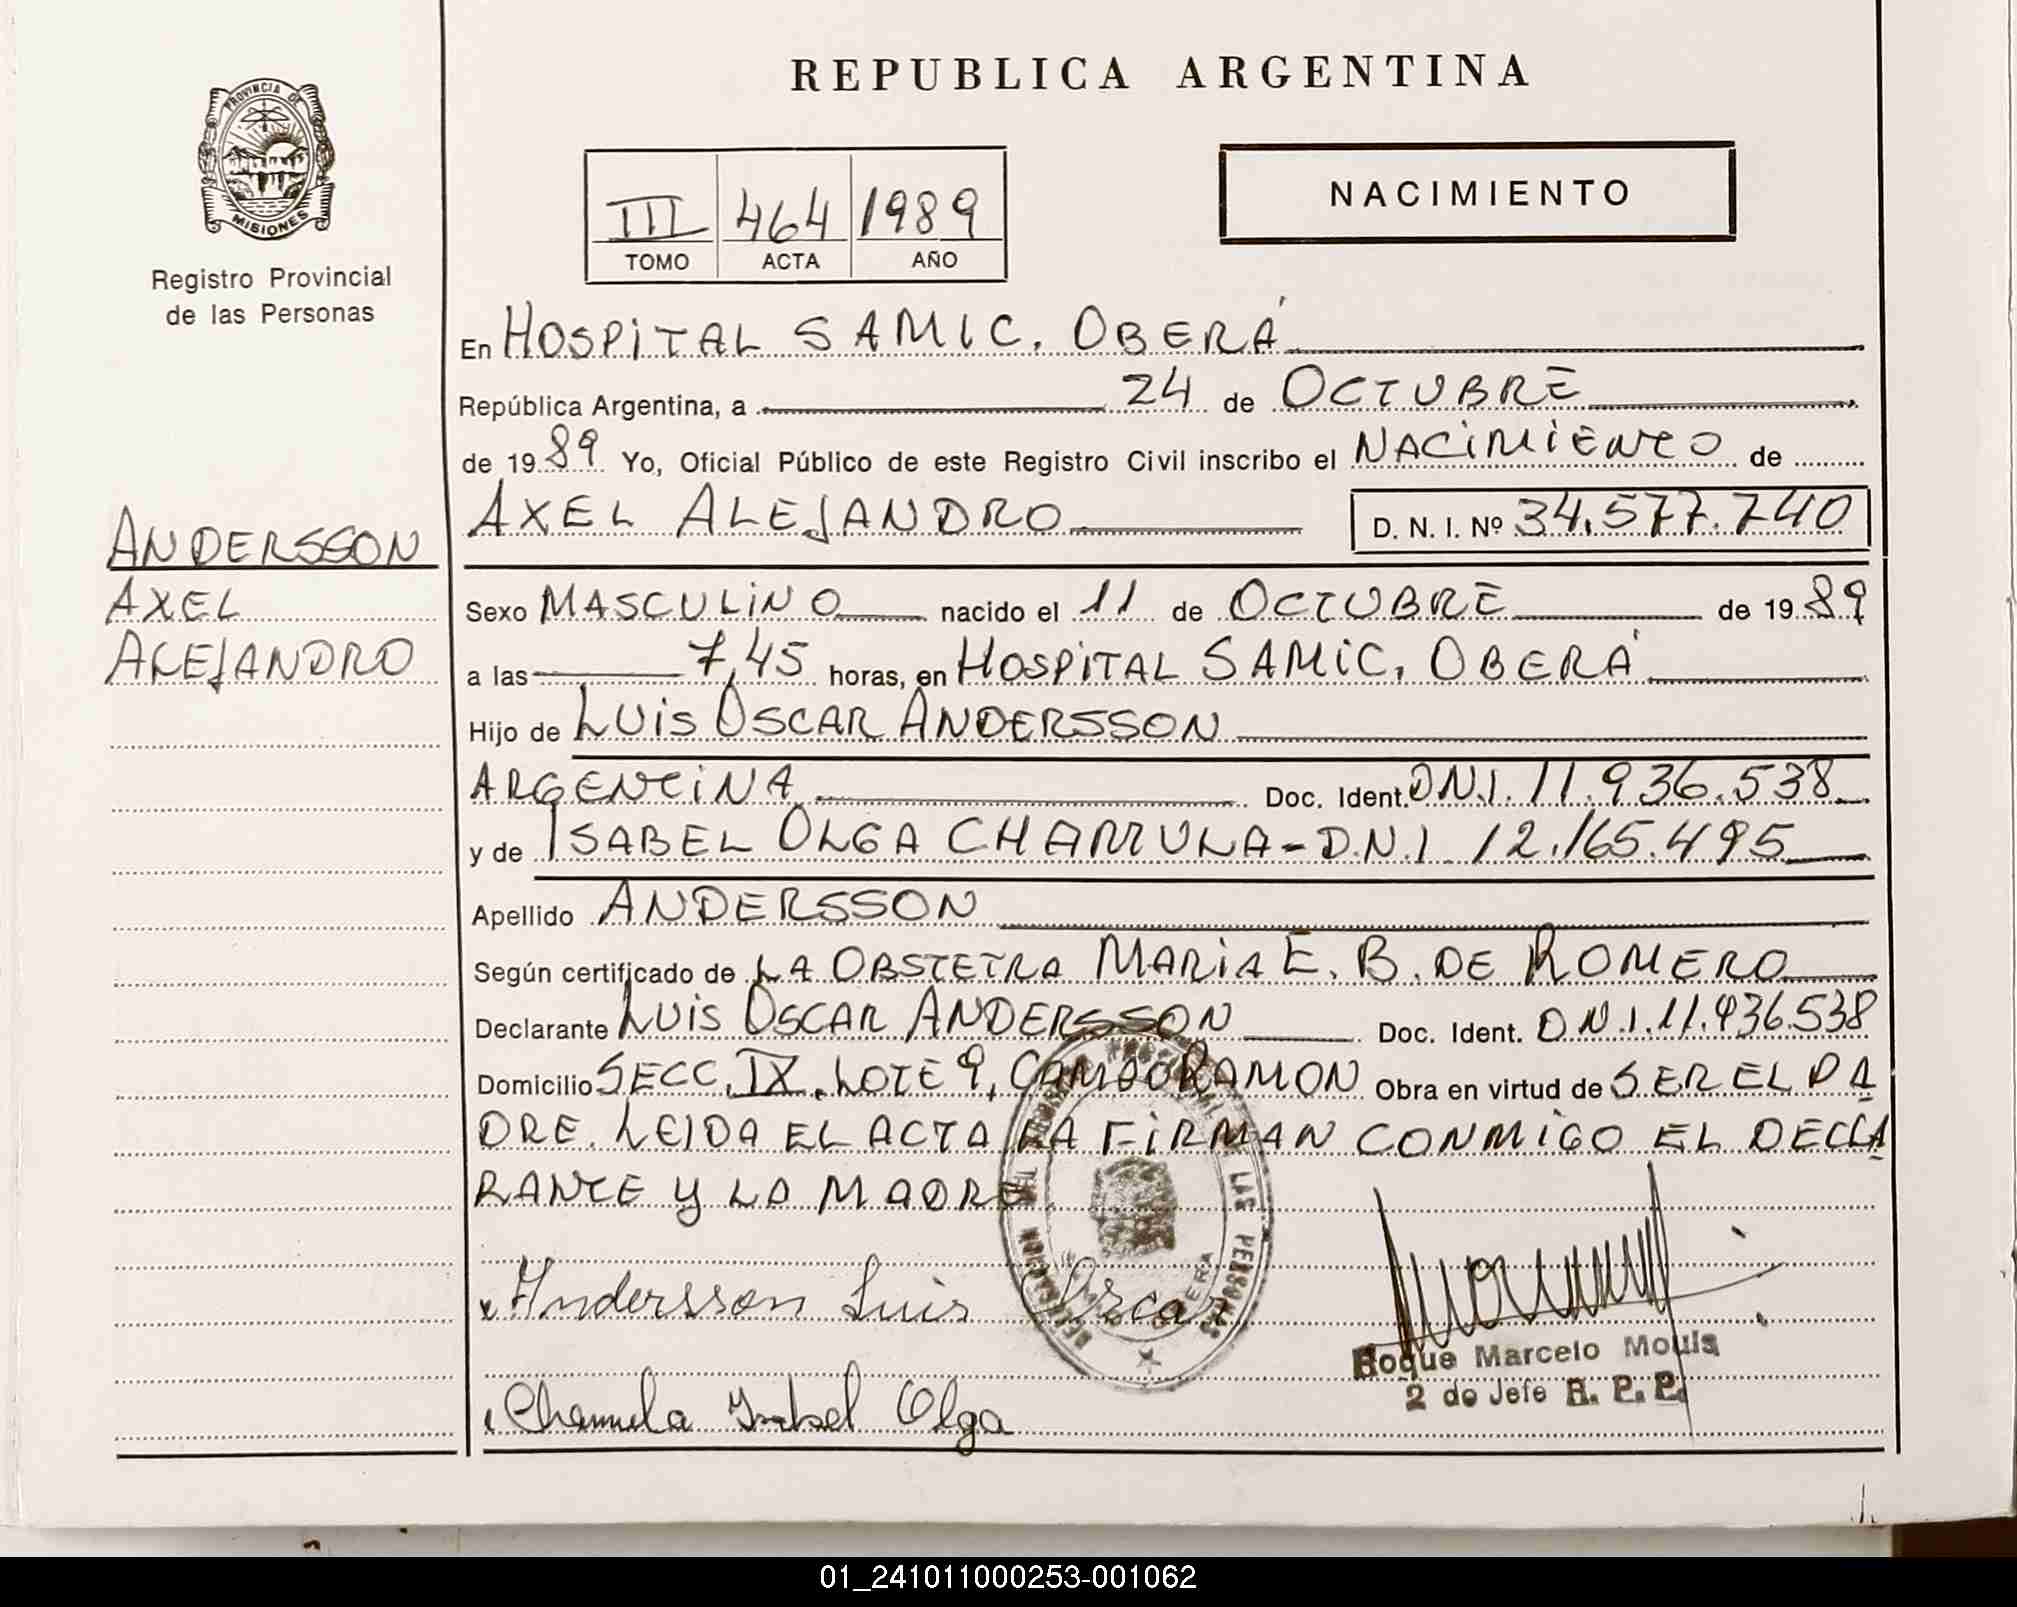 REPUBLICA ARGENTINA
PROVINCIA DE
MISIONES
Registro Provincial
de las Personas
III 464 1989
TOMO ACTA AÑO
NACIMIENTO
En HOSPITAL SAMIC. OBERÁ
República Argentina, a 24 de OCTUBRE
de 1989 Yo, Oficial Público de este Registro Civil inscribo el NACIMIENTO de
AXEL ALEJANDRO D. N. I. Nº 34.577.740
ANDERSSON
AXEL
ALEJANDRO
Sexo MASCULINO nacido el 11 de OCTUBRE de 1989
a las 7,45 horas, en HOSPITAL SAMIC, OBERÁ
Hijo de LUIS OSCAR ANDERSSON
ARGENTINA Doc. Ident. D.N.I. 11.936.538
y de ISABEL OLGA CHAMULA - D.N.I 12.165.495
Apellido ANDERSSON
Según certificado de LA OBSTETRA MARIA E. B. DE ROMERO
Declarante LUIS OSCAR ANDERSSON Doc. Ident. D.N.I. 11.936.538
Domicilio SECC. IX, LOTE 9, CAMPO RAMON Obra en virtud de SER EL PA
DRE. LEIDA EL ACTA LA FIRMAN CONMIGO EL DECLA
RANTE Y LA MADRE
DELEGACION DEL REGISTRO PROVINCIAL DE LAS PERSONAS
Andersson Luis Oscar
Roque Marcelo
2 do Jefe R. P. P.
Chamula Isabel Olga
01_241011000253-001062